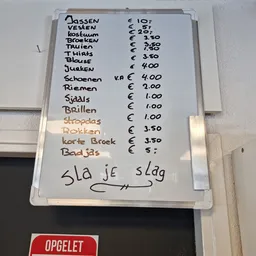 Jassen € 10,-
Vesten € 5,-
kostuum € 20,-
Broeken € 3.50
Truien € 3.50
T Hirts € 1.50
Blouse € 3.50
Jurken € 4.00
Schoenen v.a € 4.00
Riemen € 2.00
Sjaals € 1.00
Brillen € 1.00
Stropdas € 1.00
Rokken € 3.50
korte Broek € 3.50
Badjas € 5,-
Sla je slag
OPGELET